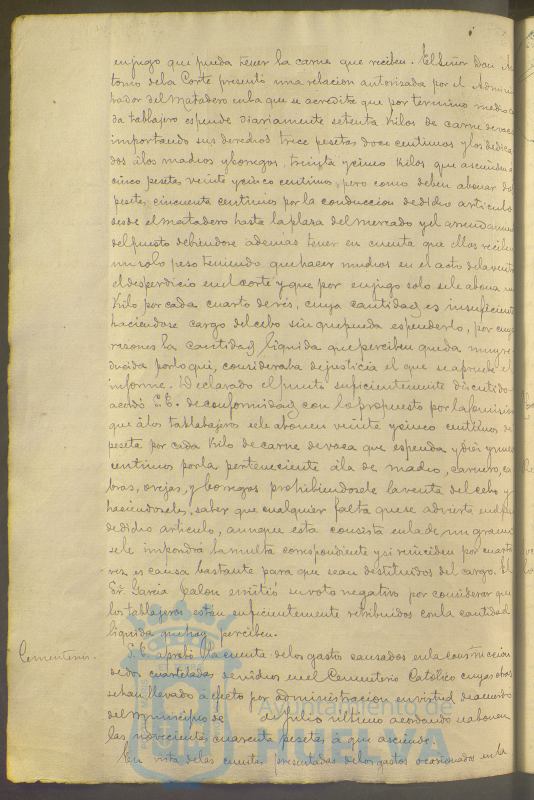 enjugo que pueda tener la carne que reciben. El Señor Don An
tonio de la Corte presentó una relacion autorizada por el Adminis
trador del Matadero en la que se acredita que por termino medio ca
da tablajero espende diariamente setenta kilos de carne de vaca
importando sus derechos trece pesetas doce centimos y los dedica
dos á los machos y borregos, treinta y cinco kilos que ascienden a
cinco pesetas veinte y cinco centimos, pero como deben abonar dos
pesetas cincuenta centimos por la conduccion de dicho articulo
desde el matadero hasta la plaza del mercado y el arrendamiento
del puesto debiendose ademas tener en cuenta que ellos reciben
un solo peso teniendo que hacer muchos en el acto de la venta
el desperdicio en el corte y que por enjugo solo se le abona un
kilo por cada cuarto de rés, cuya cantidad es insuficiente
haciendose cargo del cebo sin que pueda espenderlo, por cuyas
razones la cantidad liquida que perciben queda muy re
ducida por lo qué, consideraba de justicia el que se apruebe el
informe. Declarado el punto suficientemente discutido
acordó S.E. de conformidad con lo propuesto por la Comision
que á los tablajeros se le abonen veinte y cinco centimos de
peseta por cada kilo de carne de vaca que espenda y diez y nueve
centimos por la perteneciente á la de macho, carnero, ca
bras, ovejas, y borregos prohibiendosele la venta del cebo y
haciendoseles saber que cualquier falta que se advierta en el peso
de dicho articulo, aunque esta consista en la de un gramo
se le impondrá la multa correspondiente y si reinciden por cuarta
vez, es causa bastante para que sean destituidos del cargo. El
Sr. Garcia Calon emitió su voto negativo por considerar que
los tablajeros estan suficientemente retribuidos con la cantidad
liquida que hoy perciben.
Cementerios. S.E. aprobó la cuenta de los gastos causados en la construccion
de dos cuarteladas de nichos en el Cementerio Catolico cuyas obras
se han llevado á efecto por administracion en virtud de acuerdo
del Municipio de de Julio ultimo acordando se abonen
las novecientas cuarenta pesetas á que asciende.
En vista de las cuentas presentadas de los gastos ocasionados en la
Ayuntamiento de
HUELVA